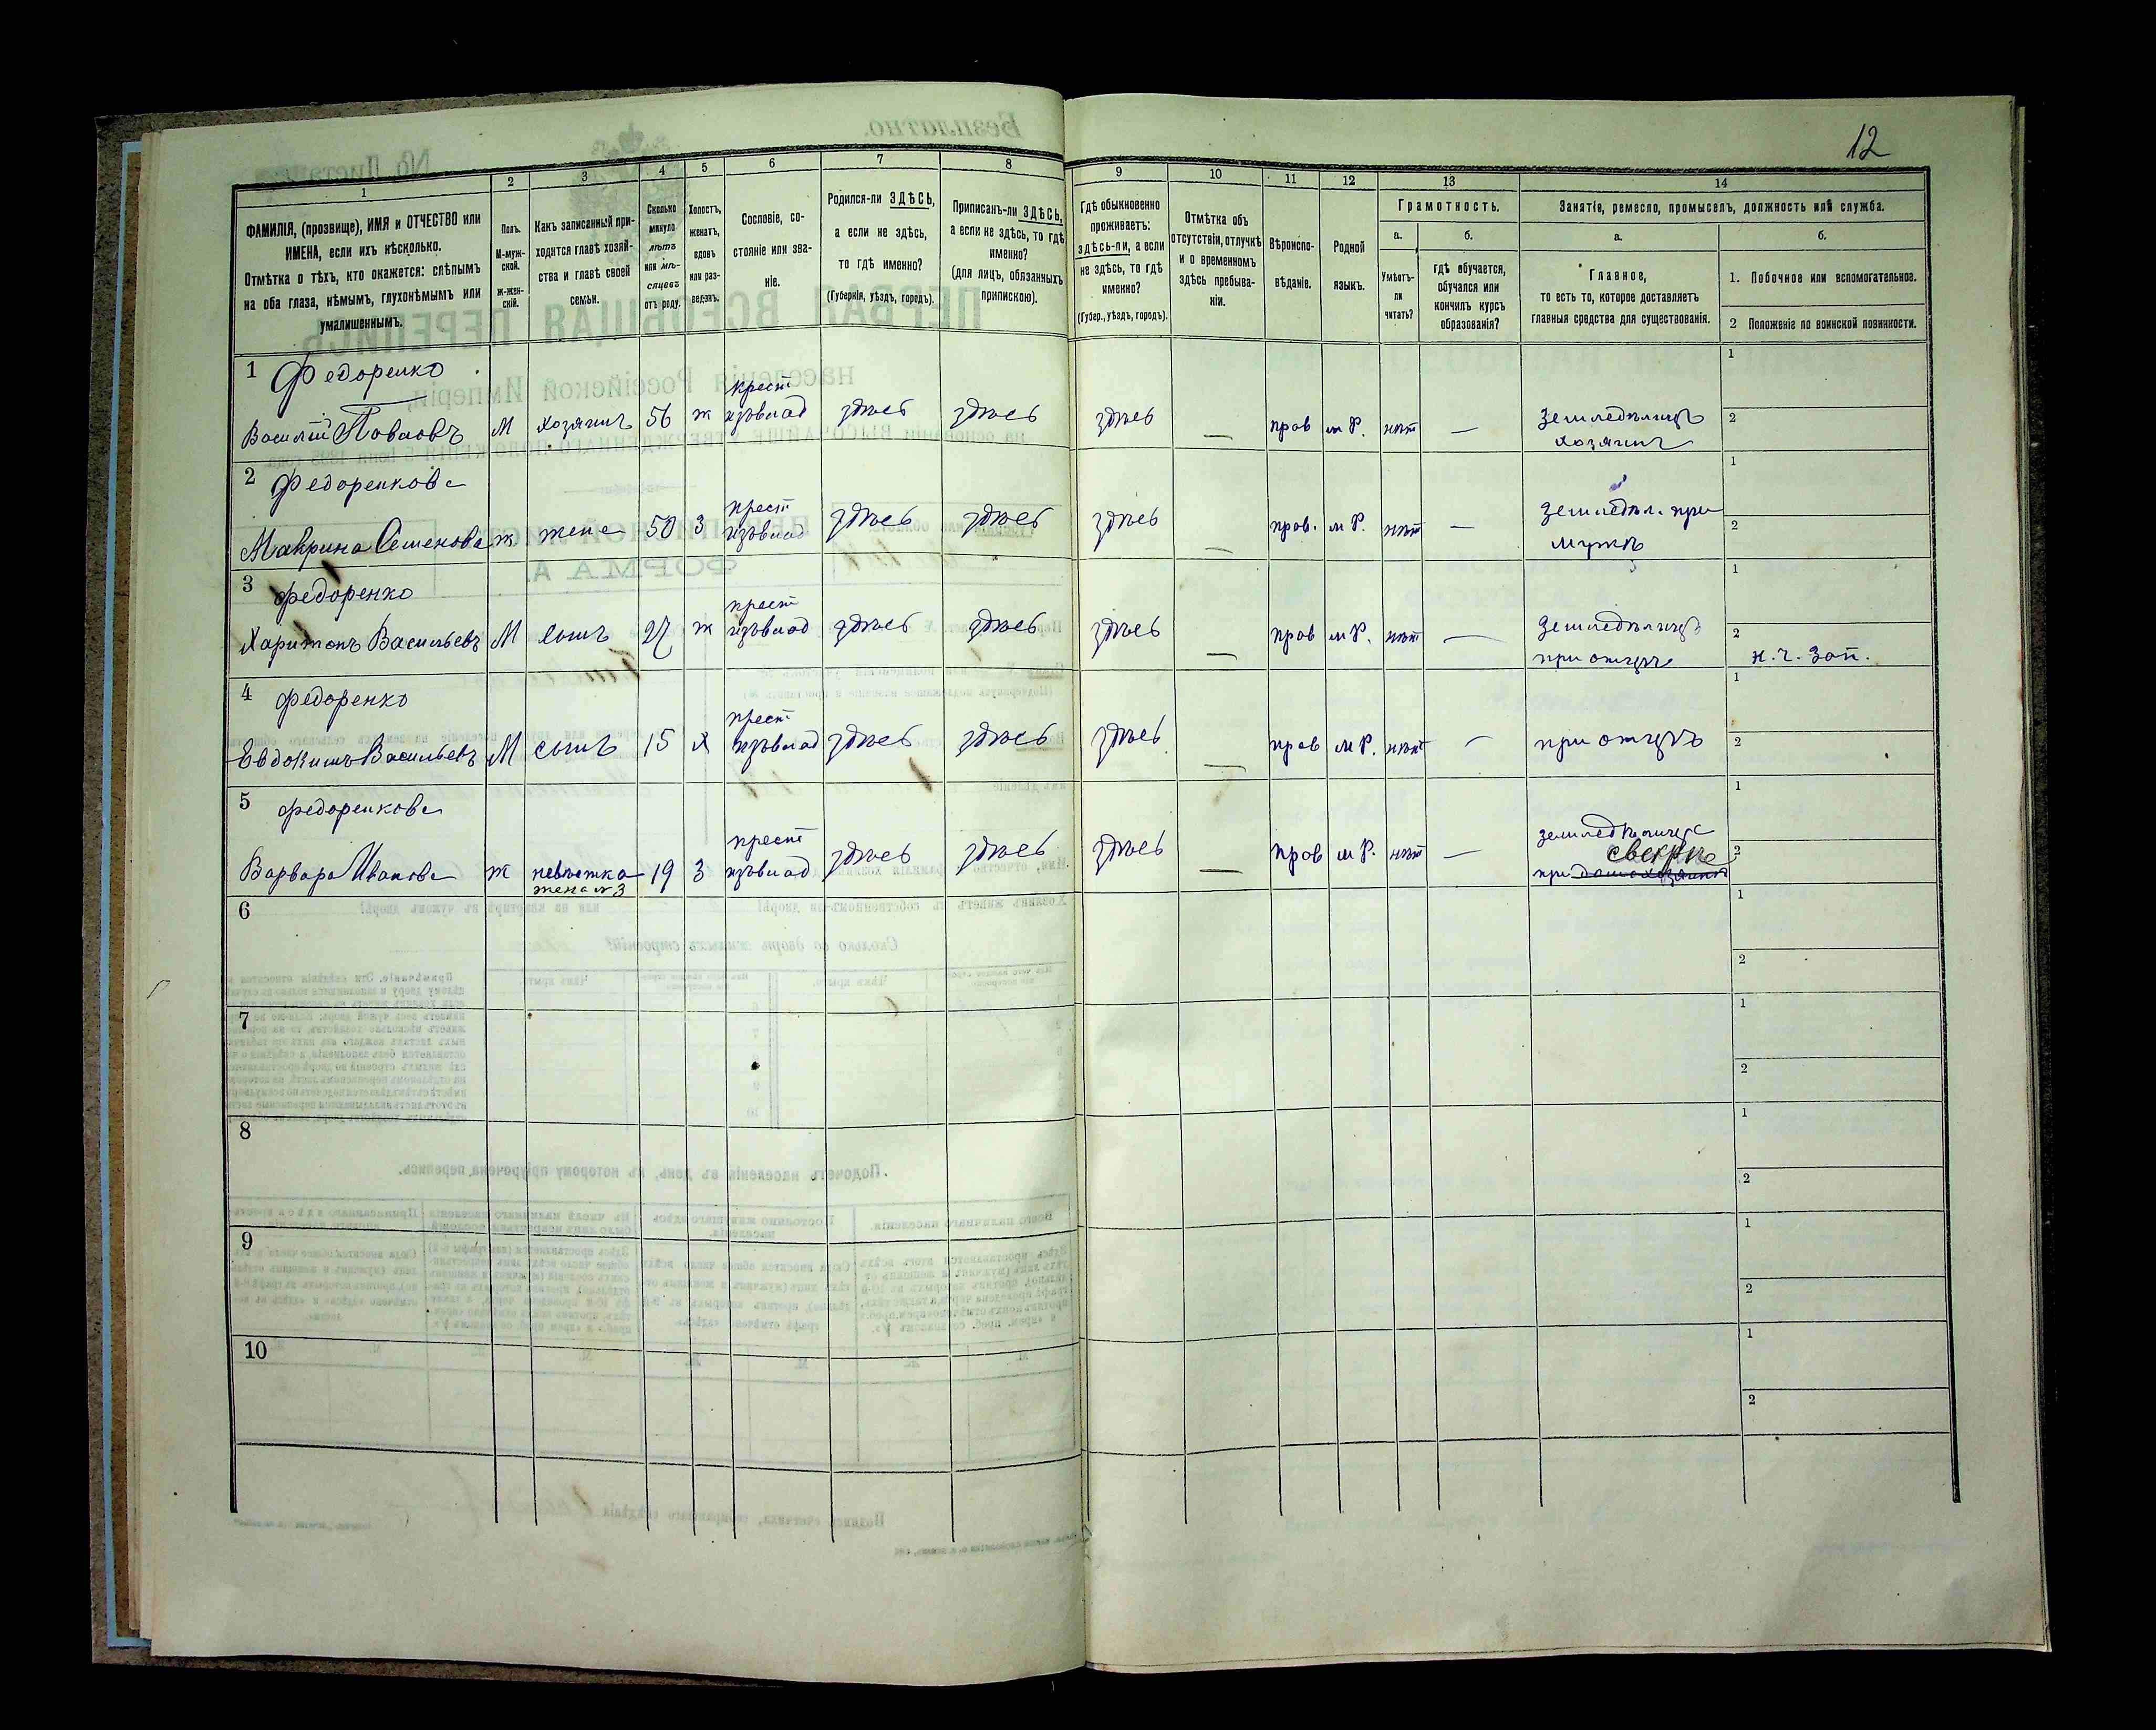 12
1 2 3 4 5 6 7 8 9 10 11 12 13 14
ФАМИЛІЯ, (прозвище), ИМЯ и ОТЧЕСТВО или
ИМЕНА, если ихъ нѣсколько.
Отмѣтка о тѣхъ, кто окажется: слѣпымъ
на оба глаза, нѣмымъ, глухонѣмымъ или
умалишеннымъ.
Полъ.
М-муж-
ской.
Ж-жен-
скій.
Какъ записанный при-
ходится главѣ хозяй-
ства и главѣ своей
семьи.
Сколько
минуло
лѣтъ
или мѣ-
сяцевъ
отъ роду.
Холостъ,
женатъ,
вдовъ
или раз-
веденъ.
Сословіе, со-
стояніе или зва-
ніе.
Родился-ли ЗДѢСЬ,
а если не здѣсь,
то гдѣ именно?
(Губернія, уѣздъ, городъ).
Приписанъ-ли ЗДѢСЬ,
а если не здѣсь, то гдѣ
именно?
(для лицъ, обязанныхъ
припискою).
Гдѣ обыкновенно
проживаетъ:
здѣсь-ли, а если
не здѣсь, то гдѣ
именно?
(Губер., уѣздъ, городъ).
Отмѣтка объ
отсутствіи, отлучкѣ
и о временномъ
здѣсь пребыва-
ніи.
Вѣроиспо-
вѣданіе.
Родной
языкъ.
Грамотность.
а.
Умѣетъ-
ли
читать?
б.
гдѣ обучается,
обучался или
кончилъ курсъ
образованія?
Занятіе, ремесло, промыселъ, должность или служба.
а.
Главное,
то есть то, которое доставляетъ
главныя средства для существованія.
б.
1. Побочное или вспомогательное.
2 Положеніе по воинской повинности.
1 Федоренко
Василій Павловъ М хозяинъ 56 ж крест
изъвлад здѣсь здѣсь здѣсь — прав м Р. нѣт —
Земледѣлецъ
хозяинъ
1
2
2 Федоренкова
Маврина Семенова ж жена 50 З крест
изъвлад здѣсь здѣсь здѣсь — прав. м Р. нѣт —
Земледѣл. при
мужѣ
1
2
3 Федоренко
Харитонъ Васильевъ М сынъ 27 ж крест
изъвлад здѣсь здѣсь здѣсь — прав м Р. нѣт —
Земледѣлецъ
при отцѣ
1
2
н. ч. Зап.
4 Федоренко
Евдокимъ Васильевъ М сынъ 15 х крест
изъвлад здѣсь здѣсь здѣсь — прав м Р. нѣт —
при отцѣ
1
2
5 Федоренкова
Варвара Иванова ж невѣстка 19 З крест
жена № 3
изъвлад здѣсь здѣсь здѣсь — прав м Р. нѣт —
свекре
при
1
2
6
1
2
7
1
2
8
1
2
9
1
2
10
1
2